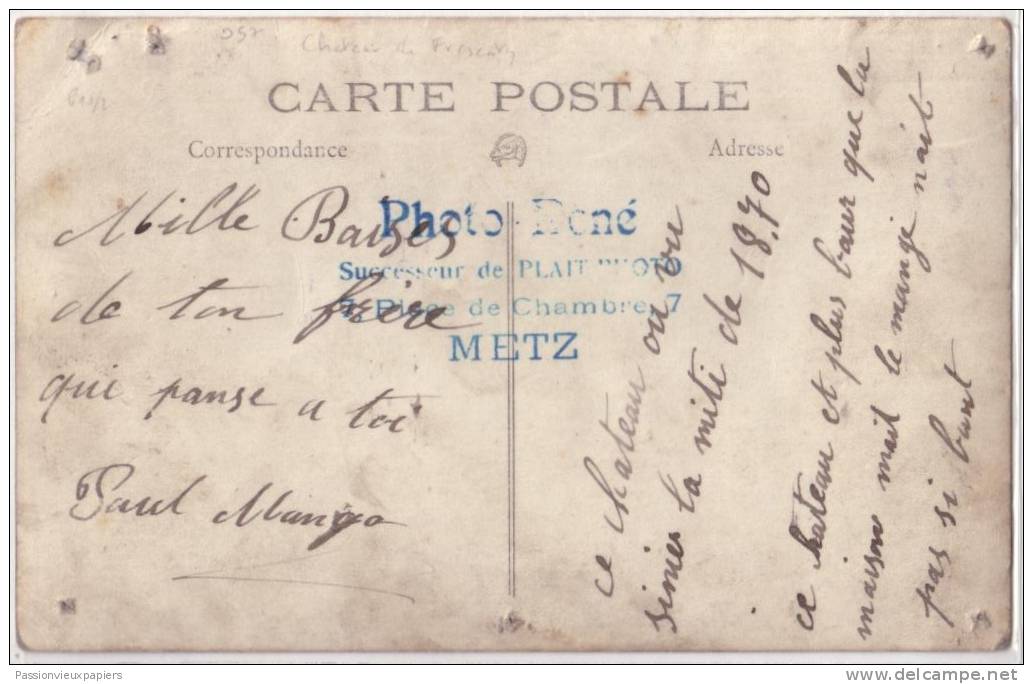 Chateau de Frescaty
CARTE POSTALE
Correspondance
Adresse
Photo René
Successeur de PLAIT PHOTO
7, Place de Chambre, 7
METZ
Mille Baizes
de ton frère
qui panse a toi
Paul Mango
ce chateau ou ou
sinier la miti de 18.70
ce hateau et plus baur que la
maison mait le mange nait
pas si bunt
Passionvieuxpapiers
www.delcampe.net